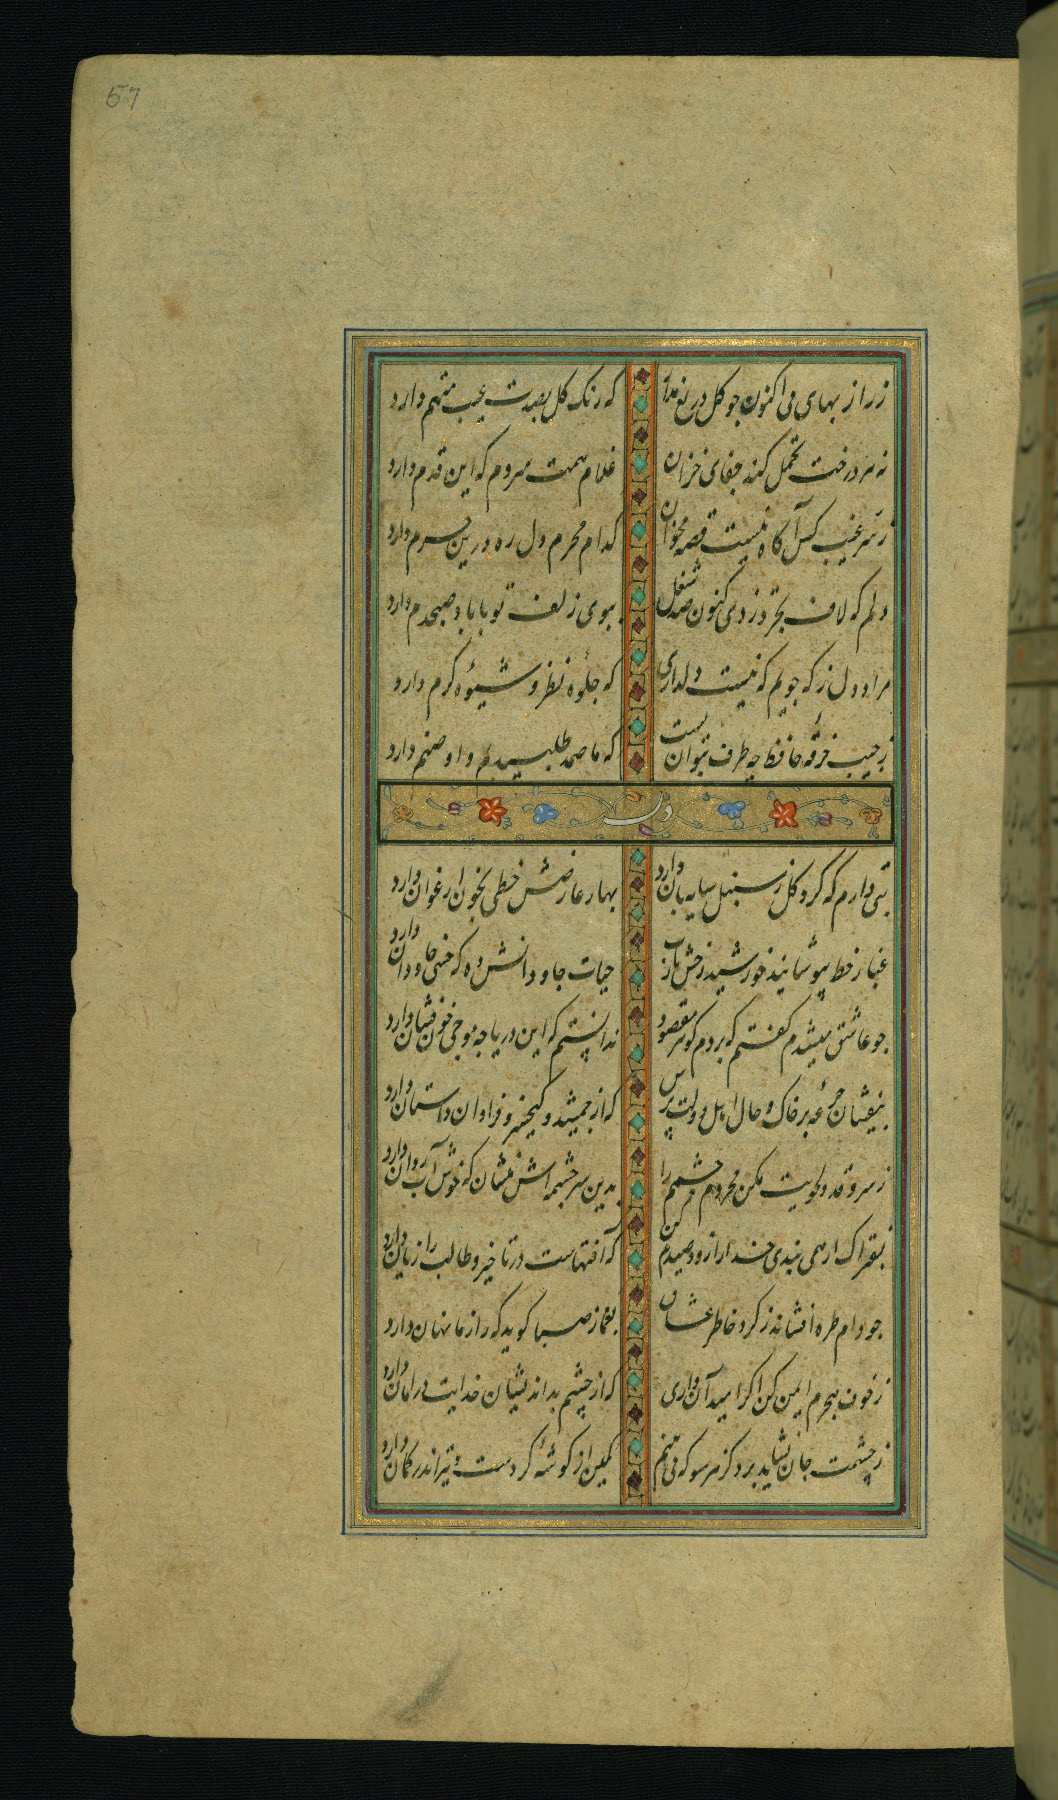 57
زر از بهای می اکنون جو کل دریغ مدار
که رنک کل بصدت عیب متهم دارد
نه هر درخت تحمل کند جفای خزان
غلام همت سروم که این قدم دارد
ز سر غیب کس آکاه نیست قصه مخوان
کدام محرم دل ره درین حرم دارد
دلم که لاف تجرد زدی کنون صد شغل
ببوی زلف تو با باد صبحدم دارد
مراد دل ز که جویم که نیست دلداری
که جلوه نظر و شیوه کرم دارد
ز جیب خرقه حافظ چه طرف بتوان بست
که ما صمد طلبیدیم و او صنم دارد
وله
بتی دارم که کرد کل ز سنبل سایه بان دارد
بهار عارضش خطی بخون ارغوان دارد
غبار خط بپوشانید خورشید رخش یارب
حیات جاودانش ده که حسن جاودان دارد
جو عاشق میشدم کفتم که بردم کوهر مقصود
ندانستم که این دریا جه موجی خون فشان دارد
بیفشان جرعهٔ بر خاک و حال اهل دولت پرس
که از جمشید و کیخسرو فراوان داستان دارد
ز سرو قد دلجویت مکن محروم چشمم را
بدین سرچشمه اش بنشان که خوش آب روان دارد
بفتراک ار همی بندی خدا را زود صیدم کن
که آفتهاست در تاخیر و طالب را زیان دارد
جو دام طره افشاند ز کرد خاطر عشاق
بغماز صبا کوید که راز ما نهان دارد
ز خوف هجرم ایمن کن اکر امید آن داری
که از چشم بداندیشان خدایت در امان دارد
ز چشمت جان نشاید برد کز هر سو که می بینم
کمین از کوشهٔ کردست و تیر اندر کمان دارد